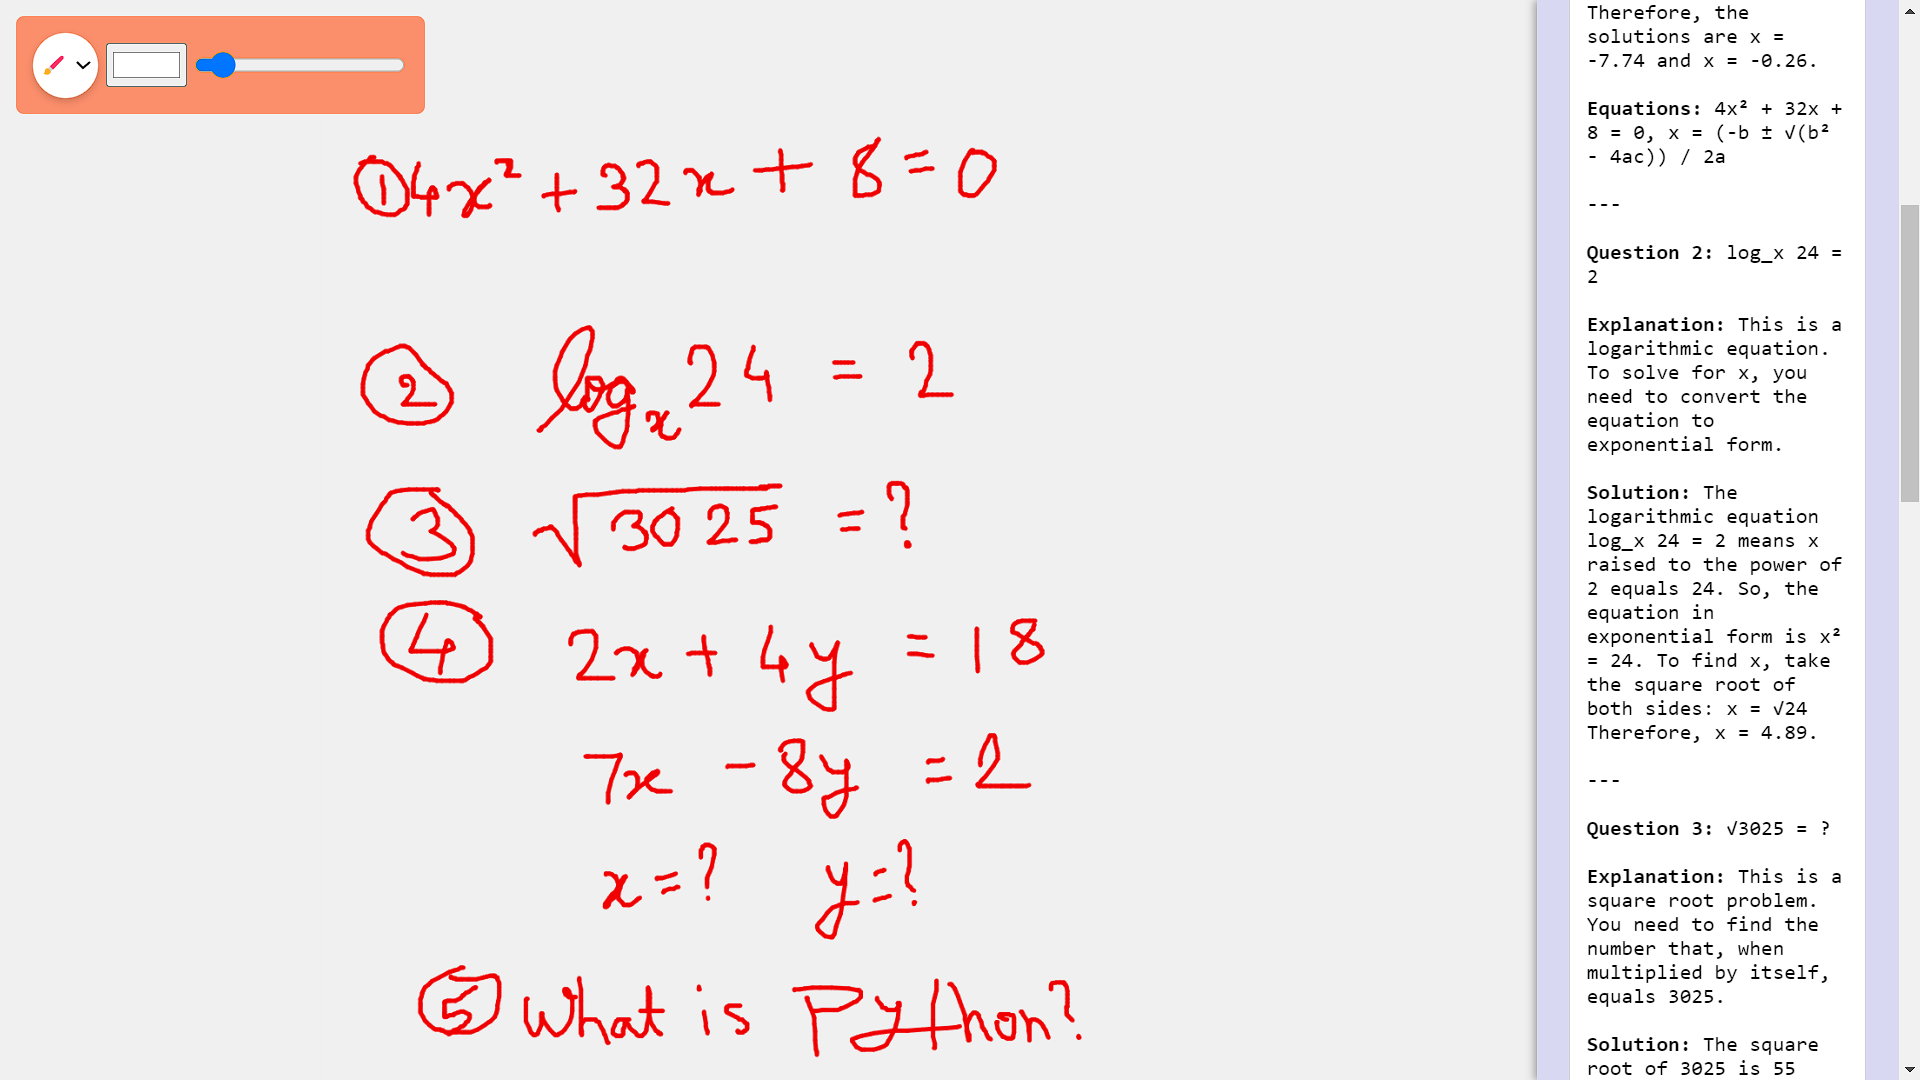 ① 4x² + 32x + 8 = 0
② logₓ 24 = 2
③ √3025 = ?
④ 2x + 4y = 18
7x - 8y = 2
x = ? y = ?
⑤ What is Python?
Therefore, the
solutions are x =
-7.74 and x = -0.26.
Equations: 4x² + 32x +
8 = 0, x = (-b ± √(b²
- 4ac)) / 2a
---
Question 2: log_x 24 =
2
Explanation: This is a
logarithmic equation.
To solve for x, you
need to convert the
equation to
exponential form.
Solution: The
logarithmic equation
log_x 24 = 2 means x
raised to the power of
2 equals 24. So, the
equation in
exponential form is x²
= 24. To find x, take
the square root of
both sides: x = √24
Therefore, x = 4.89.
---
Question 3: √3025 = ?
Explanation: This is a
square root problem.
You need to find the
number that, when
multiplied by itself,
equals 3025.
Solution: The square
root of 3025 is 55